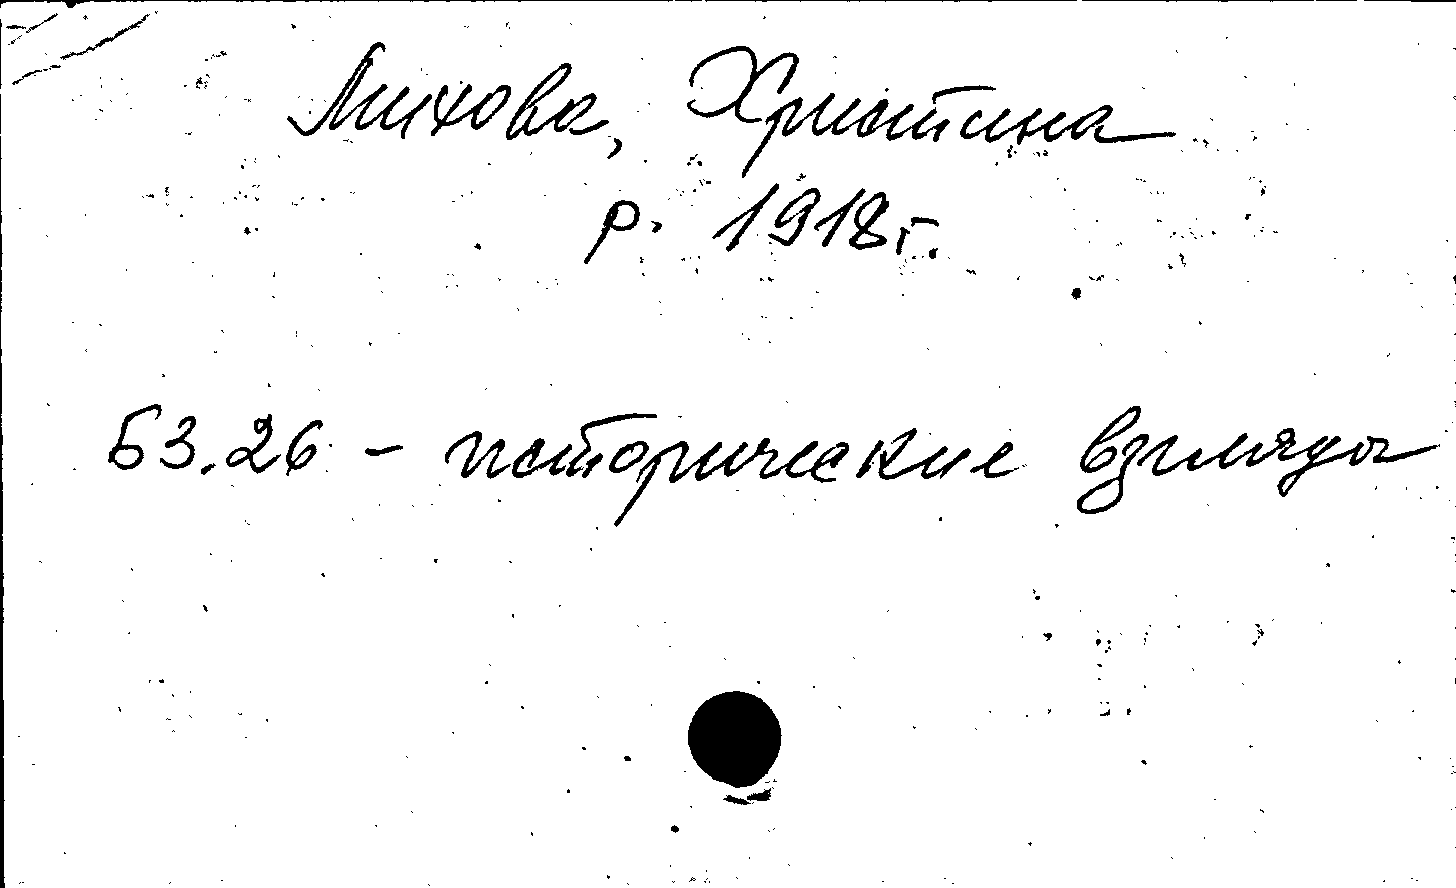 Михова, Христина
р. 1918г.
Б3.26 - исторические взгляды